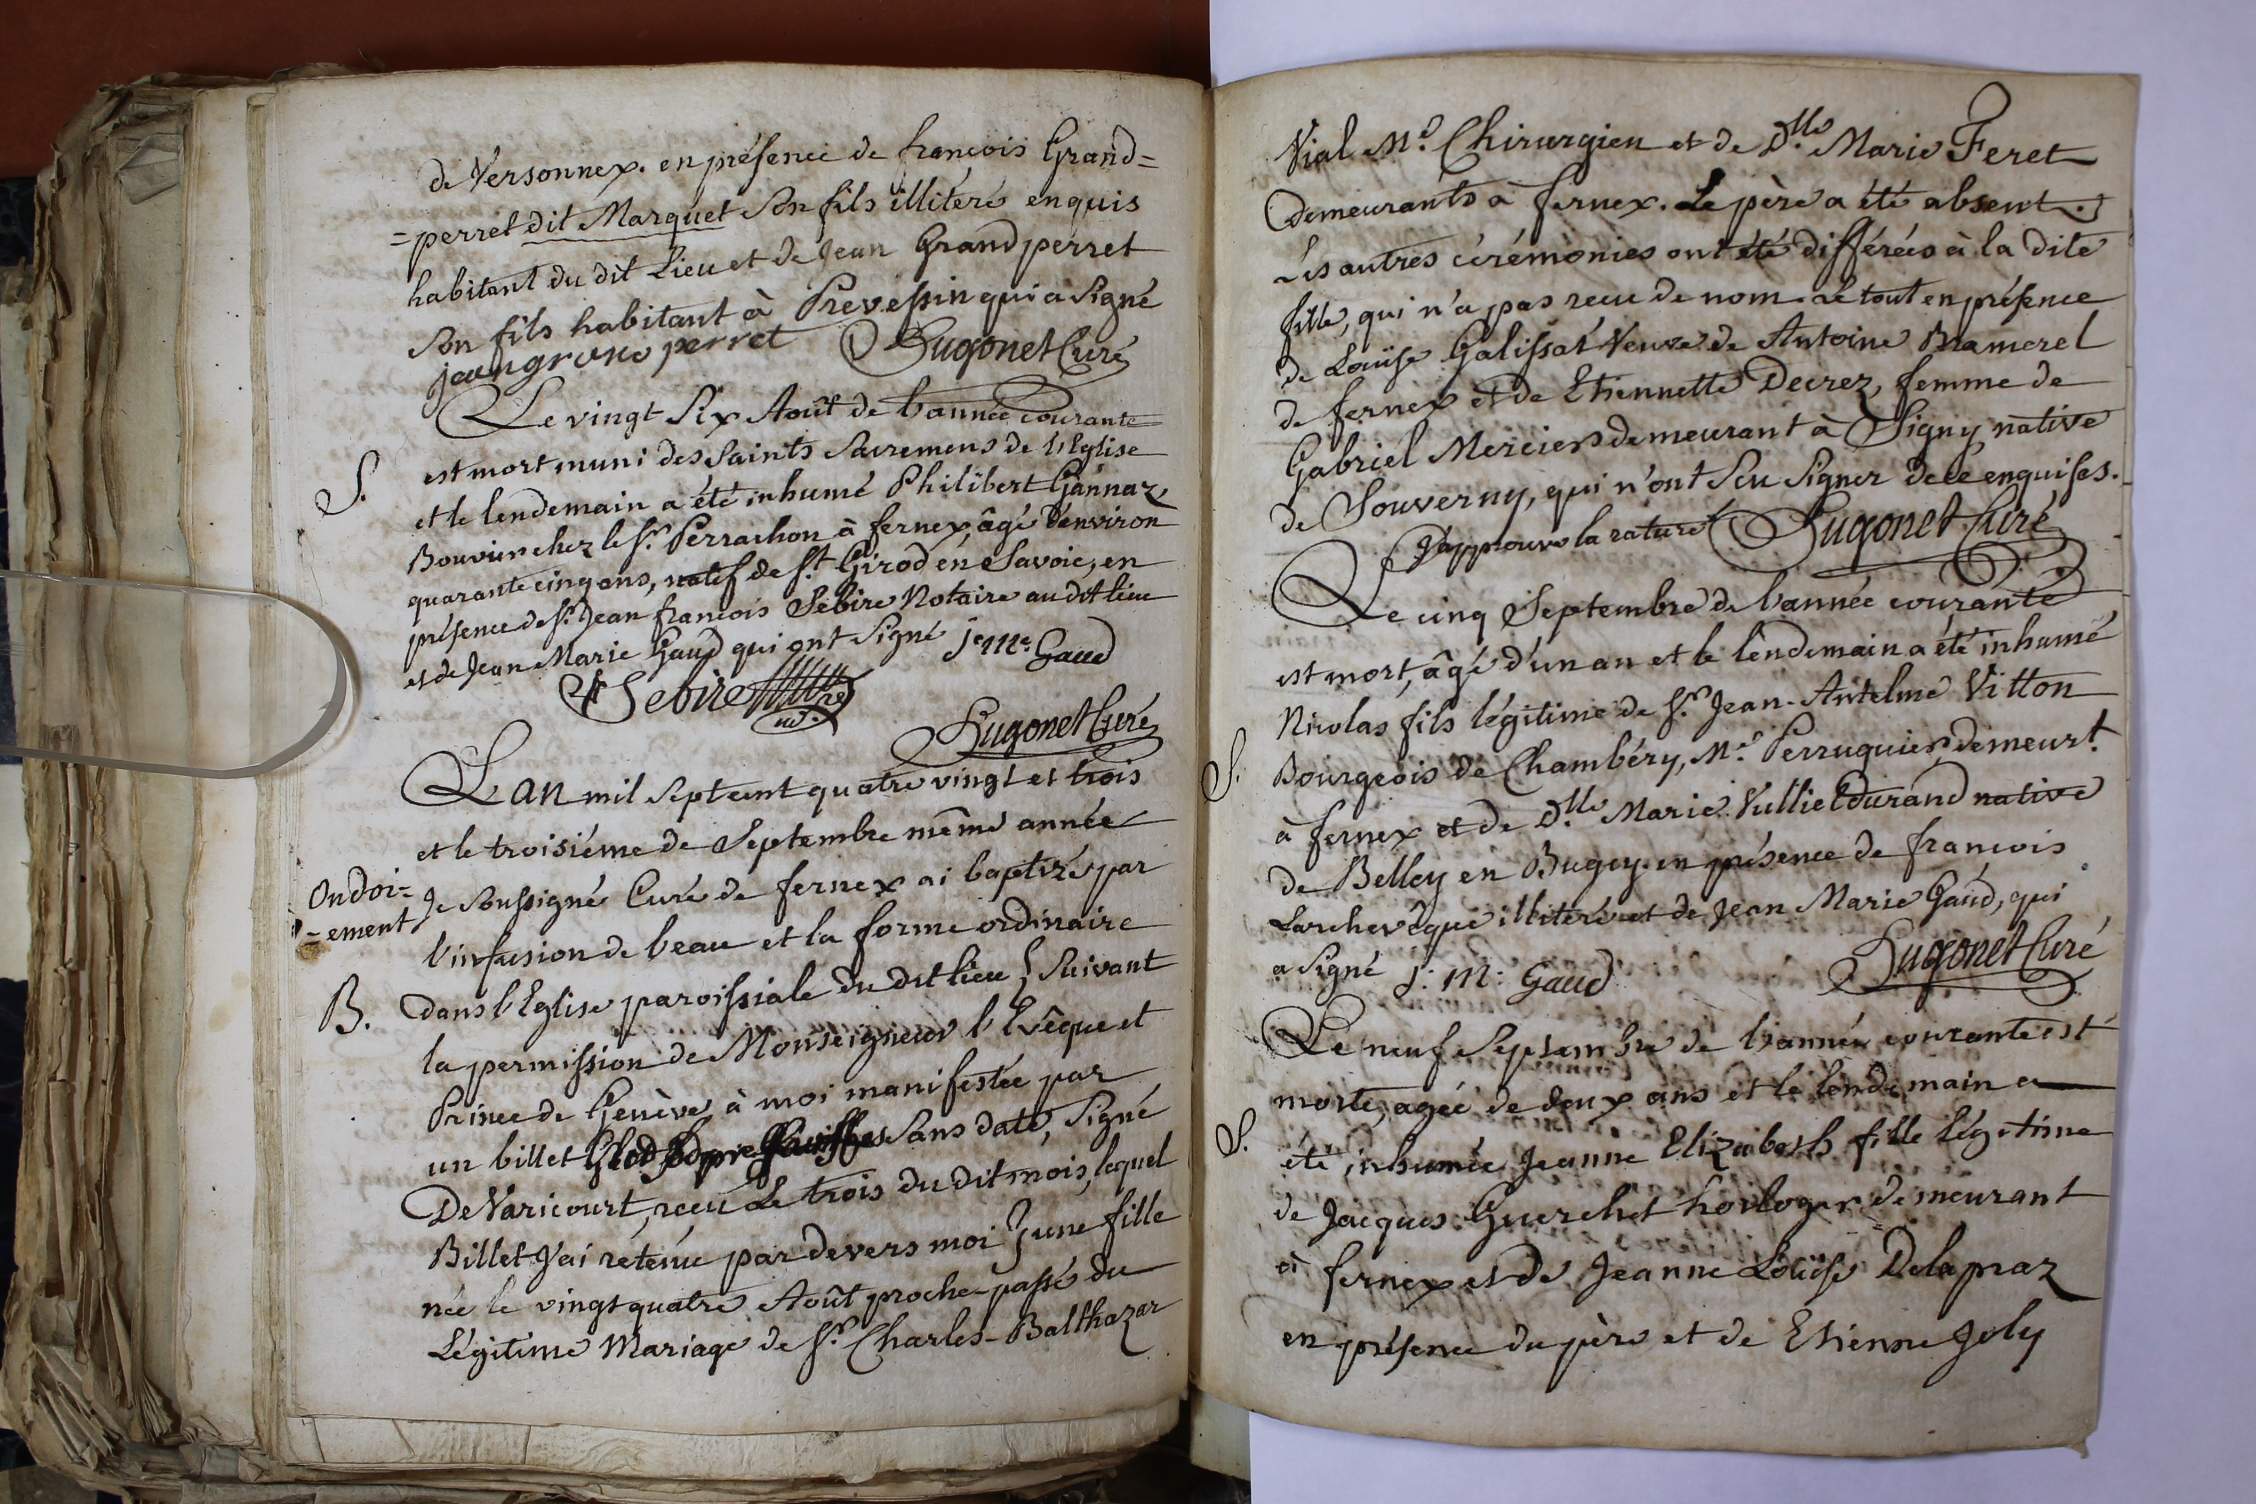 de Versonnex. en présence de françois Grand=
=perret dit Marquet son fils illitéré enquis
habitant du dit Lieu et de Jean Grandperret
son fils habitant à Prevessin qui a signé
jean grand perret Hugonet Curé
Le vingt six Août de l'année courante
S. est mort muni des saints sacremens de l'Eglise
et le lendemain a été inhumé Philibert Gannaz,
Bouvier chez le Sr. Perrachon à fernex, âgé d'environ
quarante cinq ans, natif de St. Girod en Savoie, en
présence de Sr. Jean françois Sebire Notaire au dit lieu
et de Jean Marie Gaud qui ont signé J. M. Gaud
Sebire
Hugonet Curé
L'an mil sept cent quatre vingt et trois
et le troisiéme de Septembre même année
Ondoi=
=ement
Je soussigné Curé de fernex ai baptizé par
l'infusion de l'eau et la forme ordinaire
B. Dans l'Eglise paroissiale du dit lieu suivant
la permission de Monseigneur l'Evêque et
Prince de Genève à moi manifestée par
un billet sans date, signé
De Varicourt, recu Le trois du dit mois, lequel
Billet J'ai rétenu par devers moi une fille
née le vingt quatre Août proche-passé du
Légitime Mariage de Sr. Charles-Balthazar
Vial Me. Chirurgien et de Dlle. Marie Feret
Demeurants à fernex. Le père a été absent.
Les autres cérémonies ont été différées à la dite
fille, qui n'a pas recu de nom. Le tout en présence
de Louïse Galissat Veuve de Antoine Bramerel
de fernex et de Etiennette Decrez, femme de
Gabriel Mercier demeurant à Signy native
de Souverny, qui n'ont scu signer de ce enquises.
J'approuve la rature Hugonet Curé
Le cinq Septembre de l'année courante
est mort, âgé d'un an et le lendemain a été inhumé
Nicolas fils légitime de Sr. Jean-Antelme Vitton
S. Bourgeois de Chambéry, Me. Perruquier, demeurt.
à fernex et de Dlle. Marie Vulliet durand native
de Belley en Bugey. en présence de francois
Larchevêque illiteré et de Jean Marie Gaud, qui
a signé J: M: Gaud Hugonet Curé
Le neuf Septembre de l'année courante est
morte, agée de deux ans et le lendemain a
S. été inhumée Jeanne Elizabeth fille légitime
de Jacques Guerchet horloger demeurant
à fernex et de Jeanne Louïse Delapraz
en présence du père et de Etienne Joly